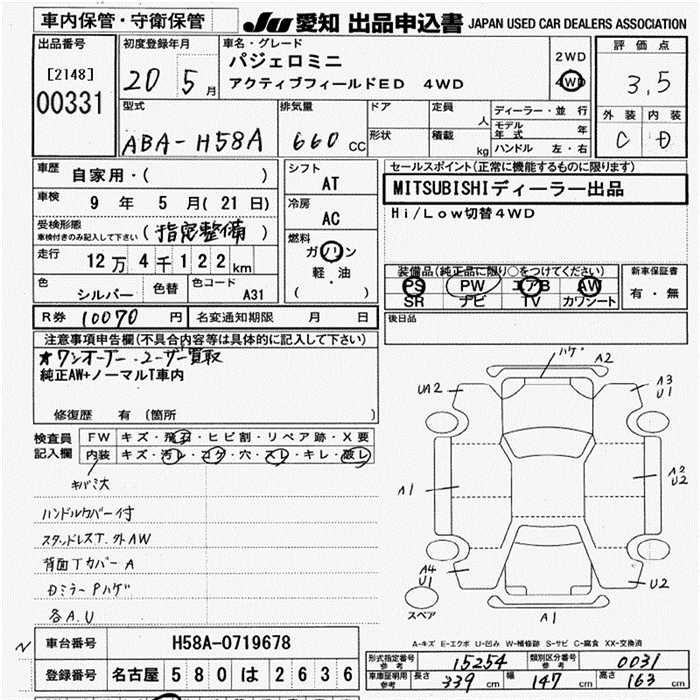 車内保管・守衛保管
JU 愛知 出品申込書 JAPAN USED CAR DEALERS ASSOCIATION
出品番号
[2148]
00331
初度登録年月
20 5月
車名・グレード
パジェロミニ
アクティブフィールドED 4WD
2WD
4WD
評価点
3.5
外装 内装
C D
型式
ABA-H58A
排気量
660 CC
ドア
形状
定員
人
積載
kg
ディーラー・並行
モデル年式 年
ハンドル 左・右
車歴
自家用・( )
車検
9 年 5 月(21日)
受検形態
車検付きのみ記入して下さい
(指定整備)
走行
12万4千122km
色
シルバー
色替
色コード
A31
シフト
AT
冷房
AC
燃料
ガソリン
軽・油
( )
セールスポイント(正常に機能するものに限ります)
MITSUBISHIディーラー出品
Hi/Low切替4WD
装備品(純正品に限り○をつけてください)
PS PW エアB AW
SR ナビ TV カワシート
新車保証書
有・無
後日品
R券 10070 円
名変通知期限 月 日
注意事項申告欄(不具合内容等は具体的に記入して下さい)
★ワンオーナー・ユーザー買取
純正AW+ノーマルT車内
修復歴 有 (箇所 )
検査員
記入欄
FW キズ・飛石・ヒビ割・リペア跡・X要
内装 キズ・汚レ・コゲ・穴・スレ・キレ・破レ
キバミ大
ハンドルカバー付
スタッドレスT.外AW
背面TカバーA
DミラーPハゲ
各A.U
ハゲ
A2
UA2
A3
U1
A1
A2
U2
A4
U1
U2
スペア
A1
A-キズ E-エクボ U-凹み W-補修跡 S-サビ C-腐食 XX-交換済
N
車台番号 H58A-0719678
登録番号 名古屋 580 は 2636
形式指定番号
参考
15254
類別区分番号
参考
0031
車庫証明用
参考
長さ 339 cm
幅 147 cm
高さ 163 cm